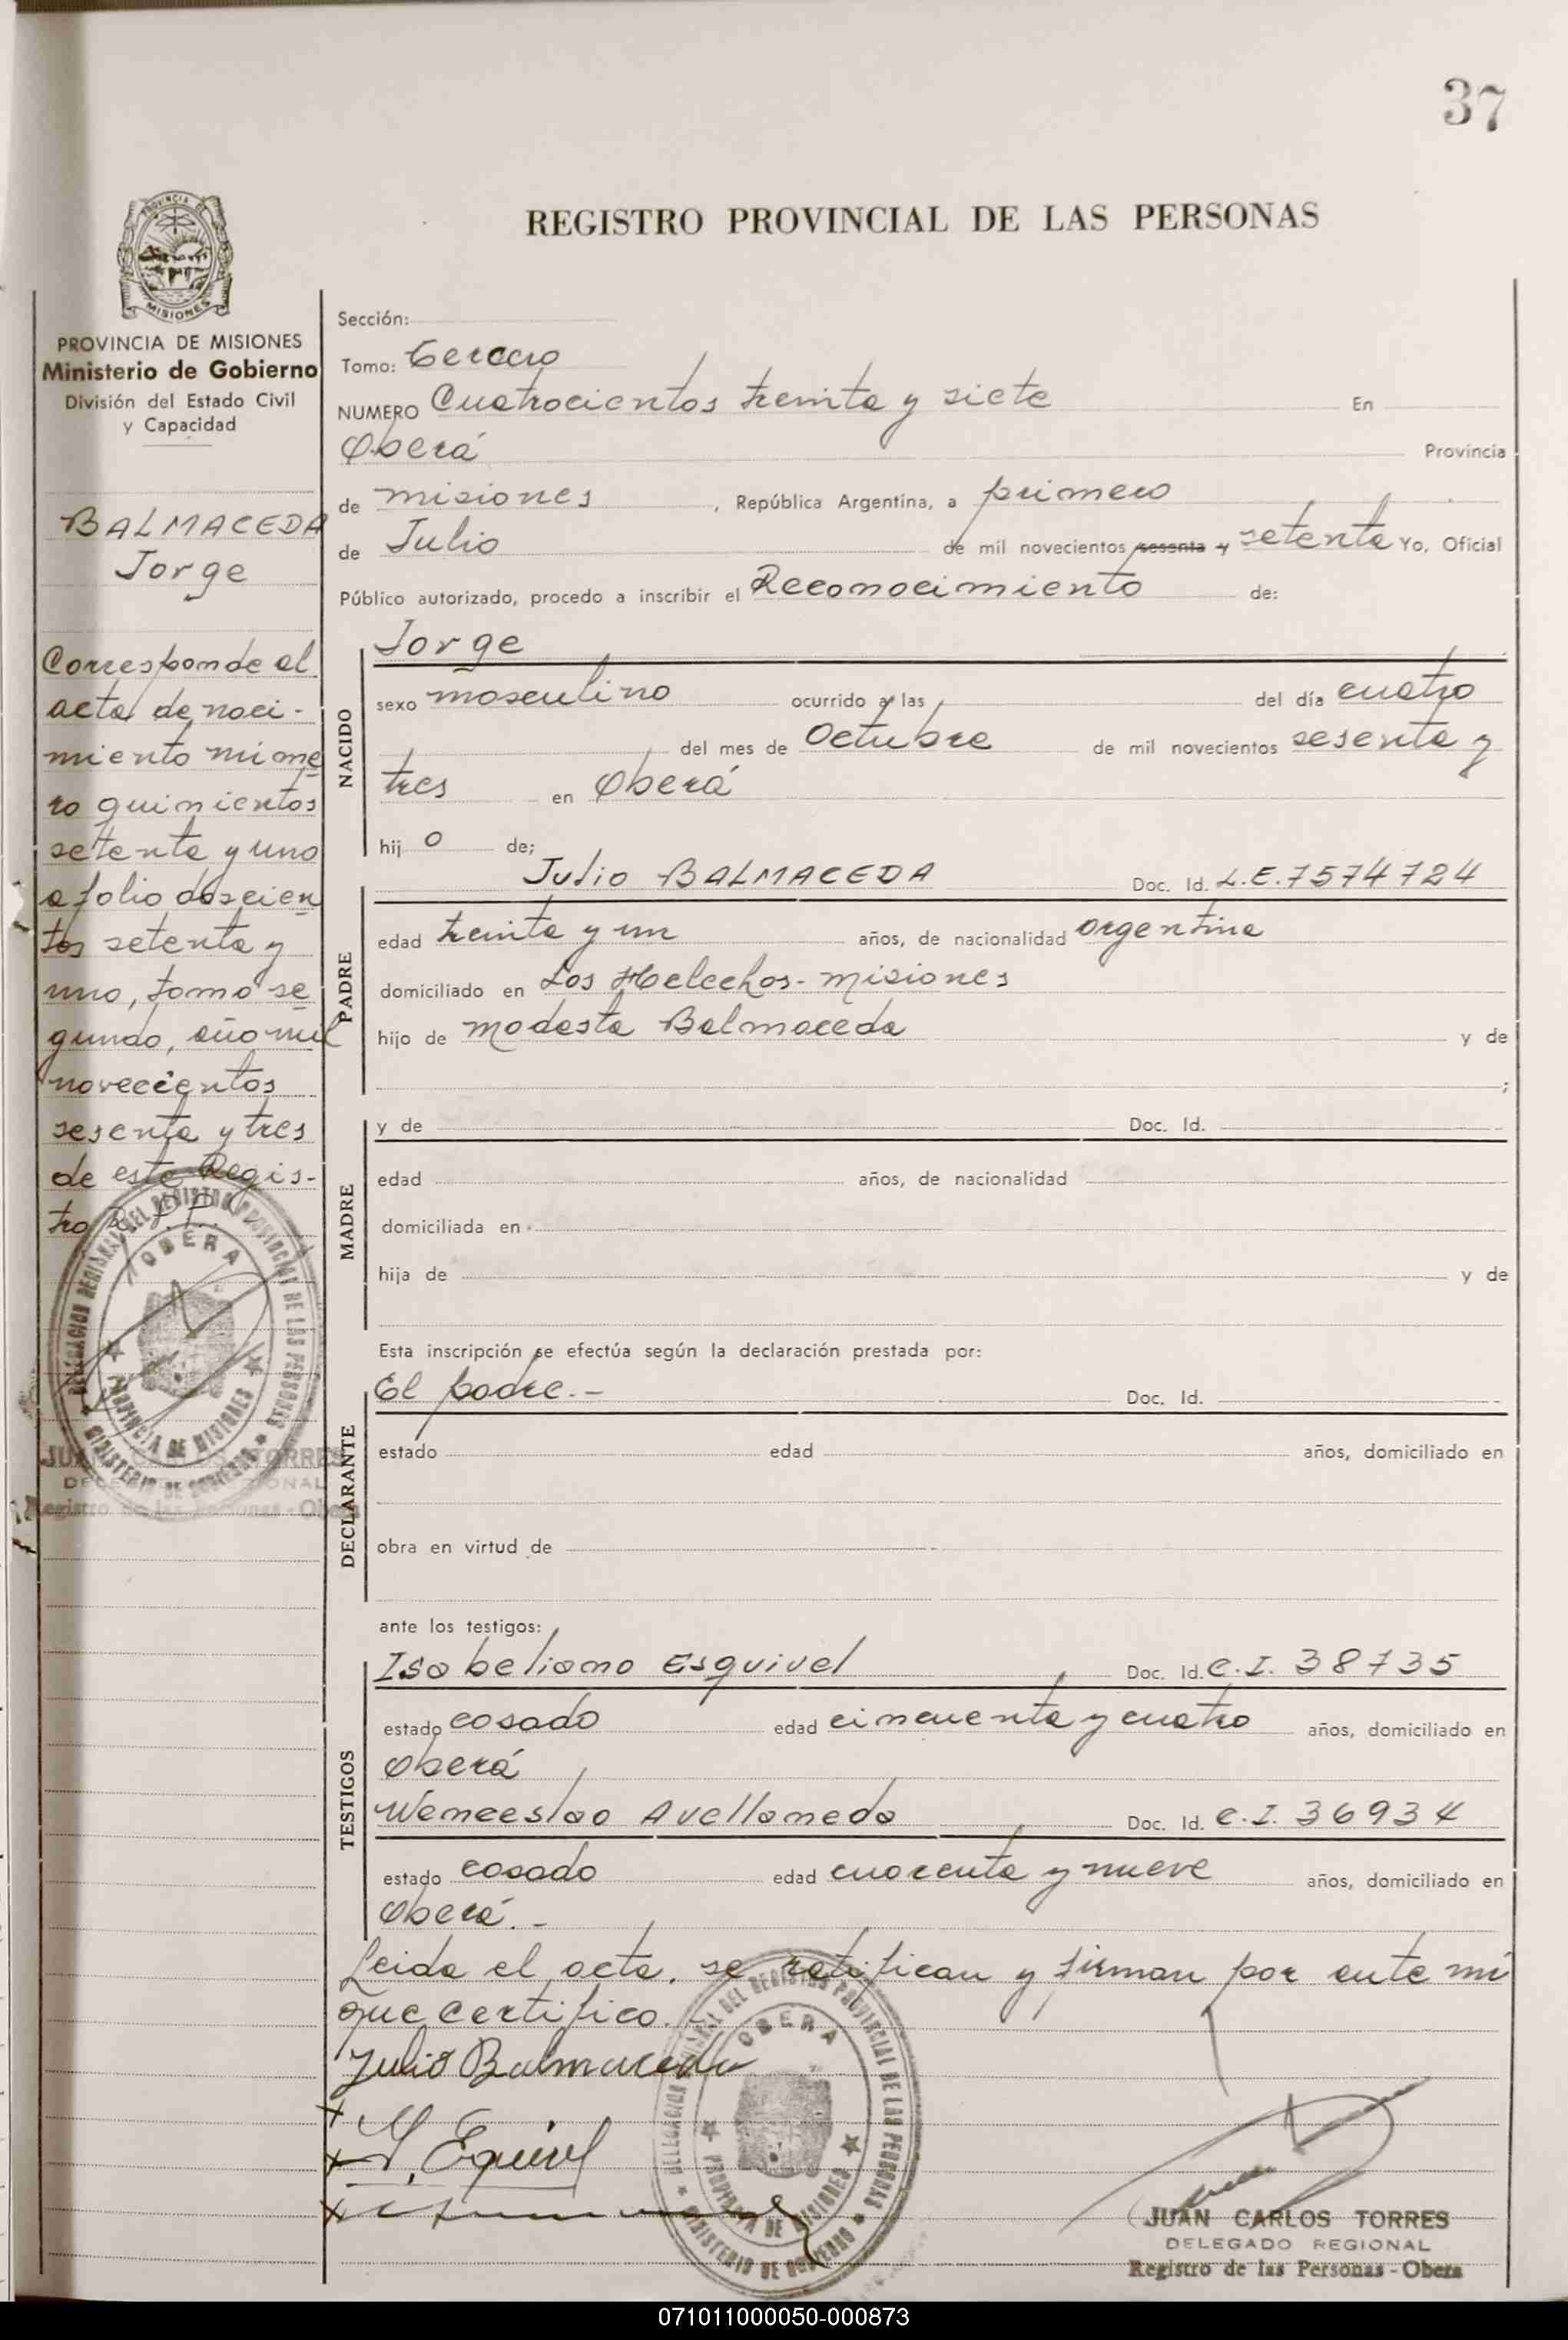 37
REGISTRO PROVINCIAL DE LAS PERSONAS
PROVINCIA DE
MISIONES
PROVINCIA DE MISIONES
Ministerio de Gobierno
División del Estado Civil
y Capacidad
BALMACEDA
Jorge
Corresponde al
acta de naci-
miento núme
ro quinientos
setenta y uno
a folio doscien
tos setenta y
uno, tomo se
gundo, año mil
novecientos
sesenta y tres
de este Regis-
tro R. P. P.
DELEGACION REGIONAL DEL REGISTRO PROVINCIAL DE LAS PERSONAS
OBERA
PROVINCIA DE MISIONES
MINISTERIO DE GOBIERNO
JUAN CARLOS TORRES
DELEGADO REGIONAL
Registro de las Personas - Obera
Sección:
Tomo: Tercero
NUMERO Cuatrocientos treinta y siete En
Oberá Provincia
de misiones, República Argentina, a primero
de Julio de mil novecientos sesenta y setenta Yo, Oficial
Público autorizado, procedo a inscribir el Reconocimiento de:
NACIDO
Jorge
sexo masculino ocurrido a las del día cuatro
del mes de Octubre de mil novecientos sesenta y
tres en Oberá
hij o de;
PADRE
Julio BALMACEDA Doc. Id. L.E. 7574724
edad treinta y un años, de nacionalidad argentina
domiciliado en Los Helechos - misiones
hijo de Modesta Balmaceda y de
;
MADRE
y de Doc. Id.
edad años, de nacionalidad
domiciliada en
hija de y de
Esta inscripción se efectúa según la declaración prestada por:
DECLARANTE
El padre.- Doc. Id.
estado edad años, domiciliado en
obra en virtud de
ante los testigos:
TESTIGOS
Isabeliano Esquivel Doc. Id. C.I. 38735
estado casado edad cincuenta y cuatro años, domiciliado en
Oberá
Wenceslao Avellaneda Doc. Id. C.I. 36934
estado casado edad cuarenta y nueve años, domiciliado en
Oberá.-
Leida el acta, se ratifican y firman por ante mi
que certifico.
Julio Balmaceda
DELEGACION REGIONAL DEL REGISTRO PROVINCIAL DE LAS PERSONAS
OBERA
PROVINCIA DE MISIONES
MINISTERIO DE GOBIERNO
JUAN CARLOS TORRES
DELEGADO REGIONAL
Registro de las Personas - Obera
071011000050-000873